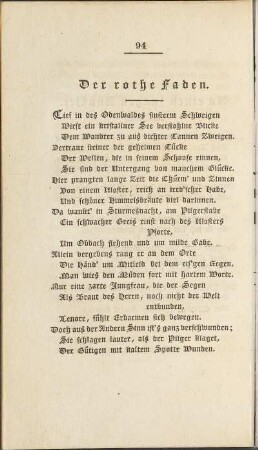 94
Der rothe Faden.
Tief in des Odenwaldes finsterm Schweigen
Wirft ein krystallner See verstohlne Blicke
Dem Wandrer zu aus dichter Tannen Zweigen.
Vertraue keiner der geheimen Tücke
Der Wellen, die in seinem Schooße rinnen,
Sie sind der Untergang von manchem Glücke.
Hier prangten lange Zeit die Thürm' und Zinnen
Von einem Kloster, reich an ird'scher Habe,
Und schöner Himmelsbräute viel darinnen.
Da wankt' in Sturmesnacht, am Pilgerstabe
Ein schwacher Greis einst nach des Klosters
Pforte,
Um Obdach flehend und um milde Gabe.
Allein vergebens rang er an dem Orte
Die Händ' um Mitleid bei dem eis'gen Regen.
Man wies den Müden fort mit hartem Worte.
Nur eine zarte Jungfrau, die der Segen
Als Braut des Herrn, noch nicht der Welt
entbunden,
Lenore, fühlt Erbarmen sich bewegen.
Doch aus der Andern Sinn ist's ganz verschwunden;
Sie schlagen lauter, als der Pilger klaget,
Der Gütigen mit kaltem Spotte Wunden.